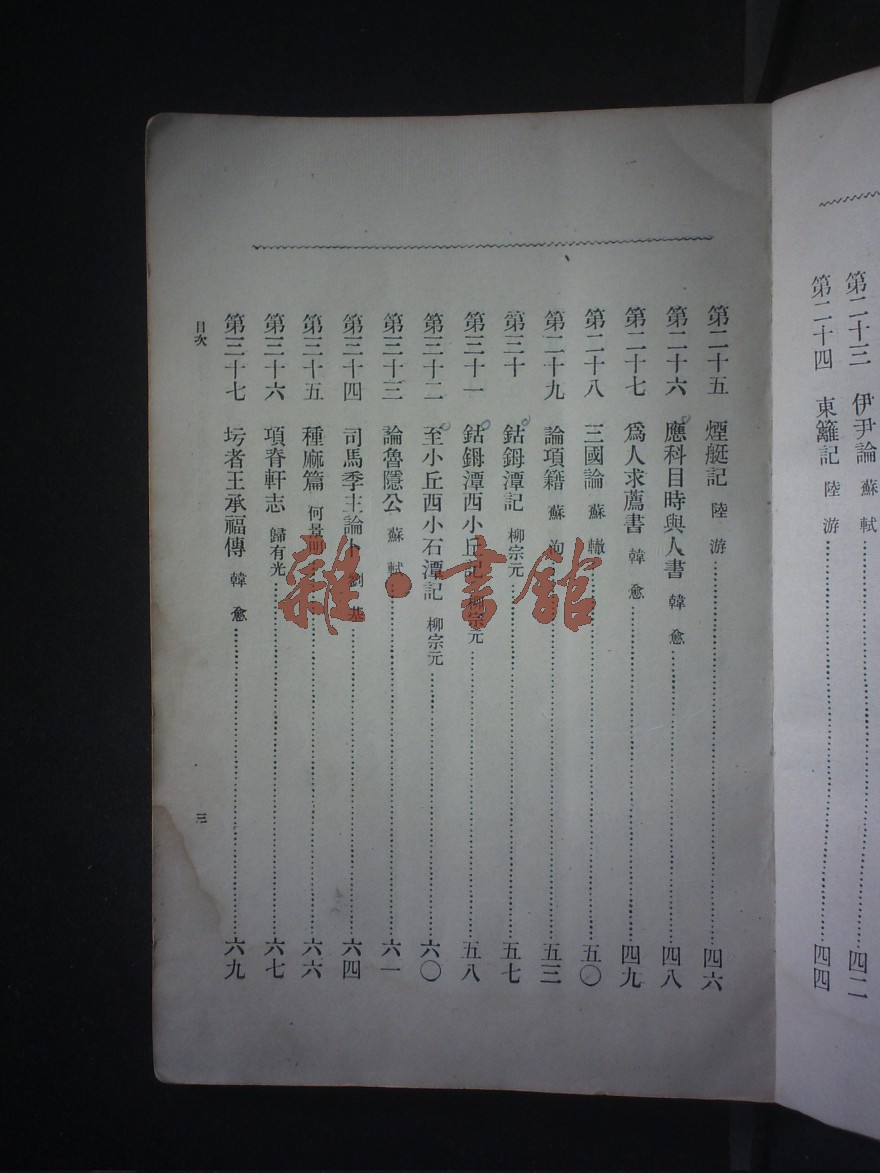 第二十三　伊尹論　蘇　軾……四二
第二十四　東籬記　陸　游……四四
第二十五　煙艇記　陸　游……四六
第二十六　應科目時與人書　韓　愈……四八
第二十七　爲人求薦書　韓　愈……四九
第二十八　三國論　蘇　轍……五〇
第二十九　論項籍　蘇　洵……五三
第三十　鈷鉧潭記　柳宗元……五七
第三十一　鈷鉧潭西小丘記　柳宗元……五八
第三十二　至小丘西小石潭記　柳宗元……六〇
第三十三　論魯隱公　蘇　軾……六一
第三十四　司馬季主論卜　劉　基……六四
第三十五　種麻篇　何景明……六六
第三十六　項脊軒志　歸有光……六七
第三十七　圬者王承福傳　韓　愈……六九
目次
三
雜·書館